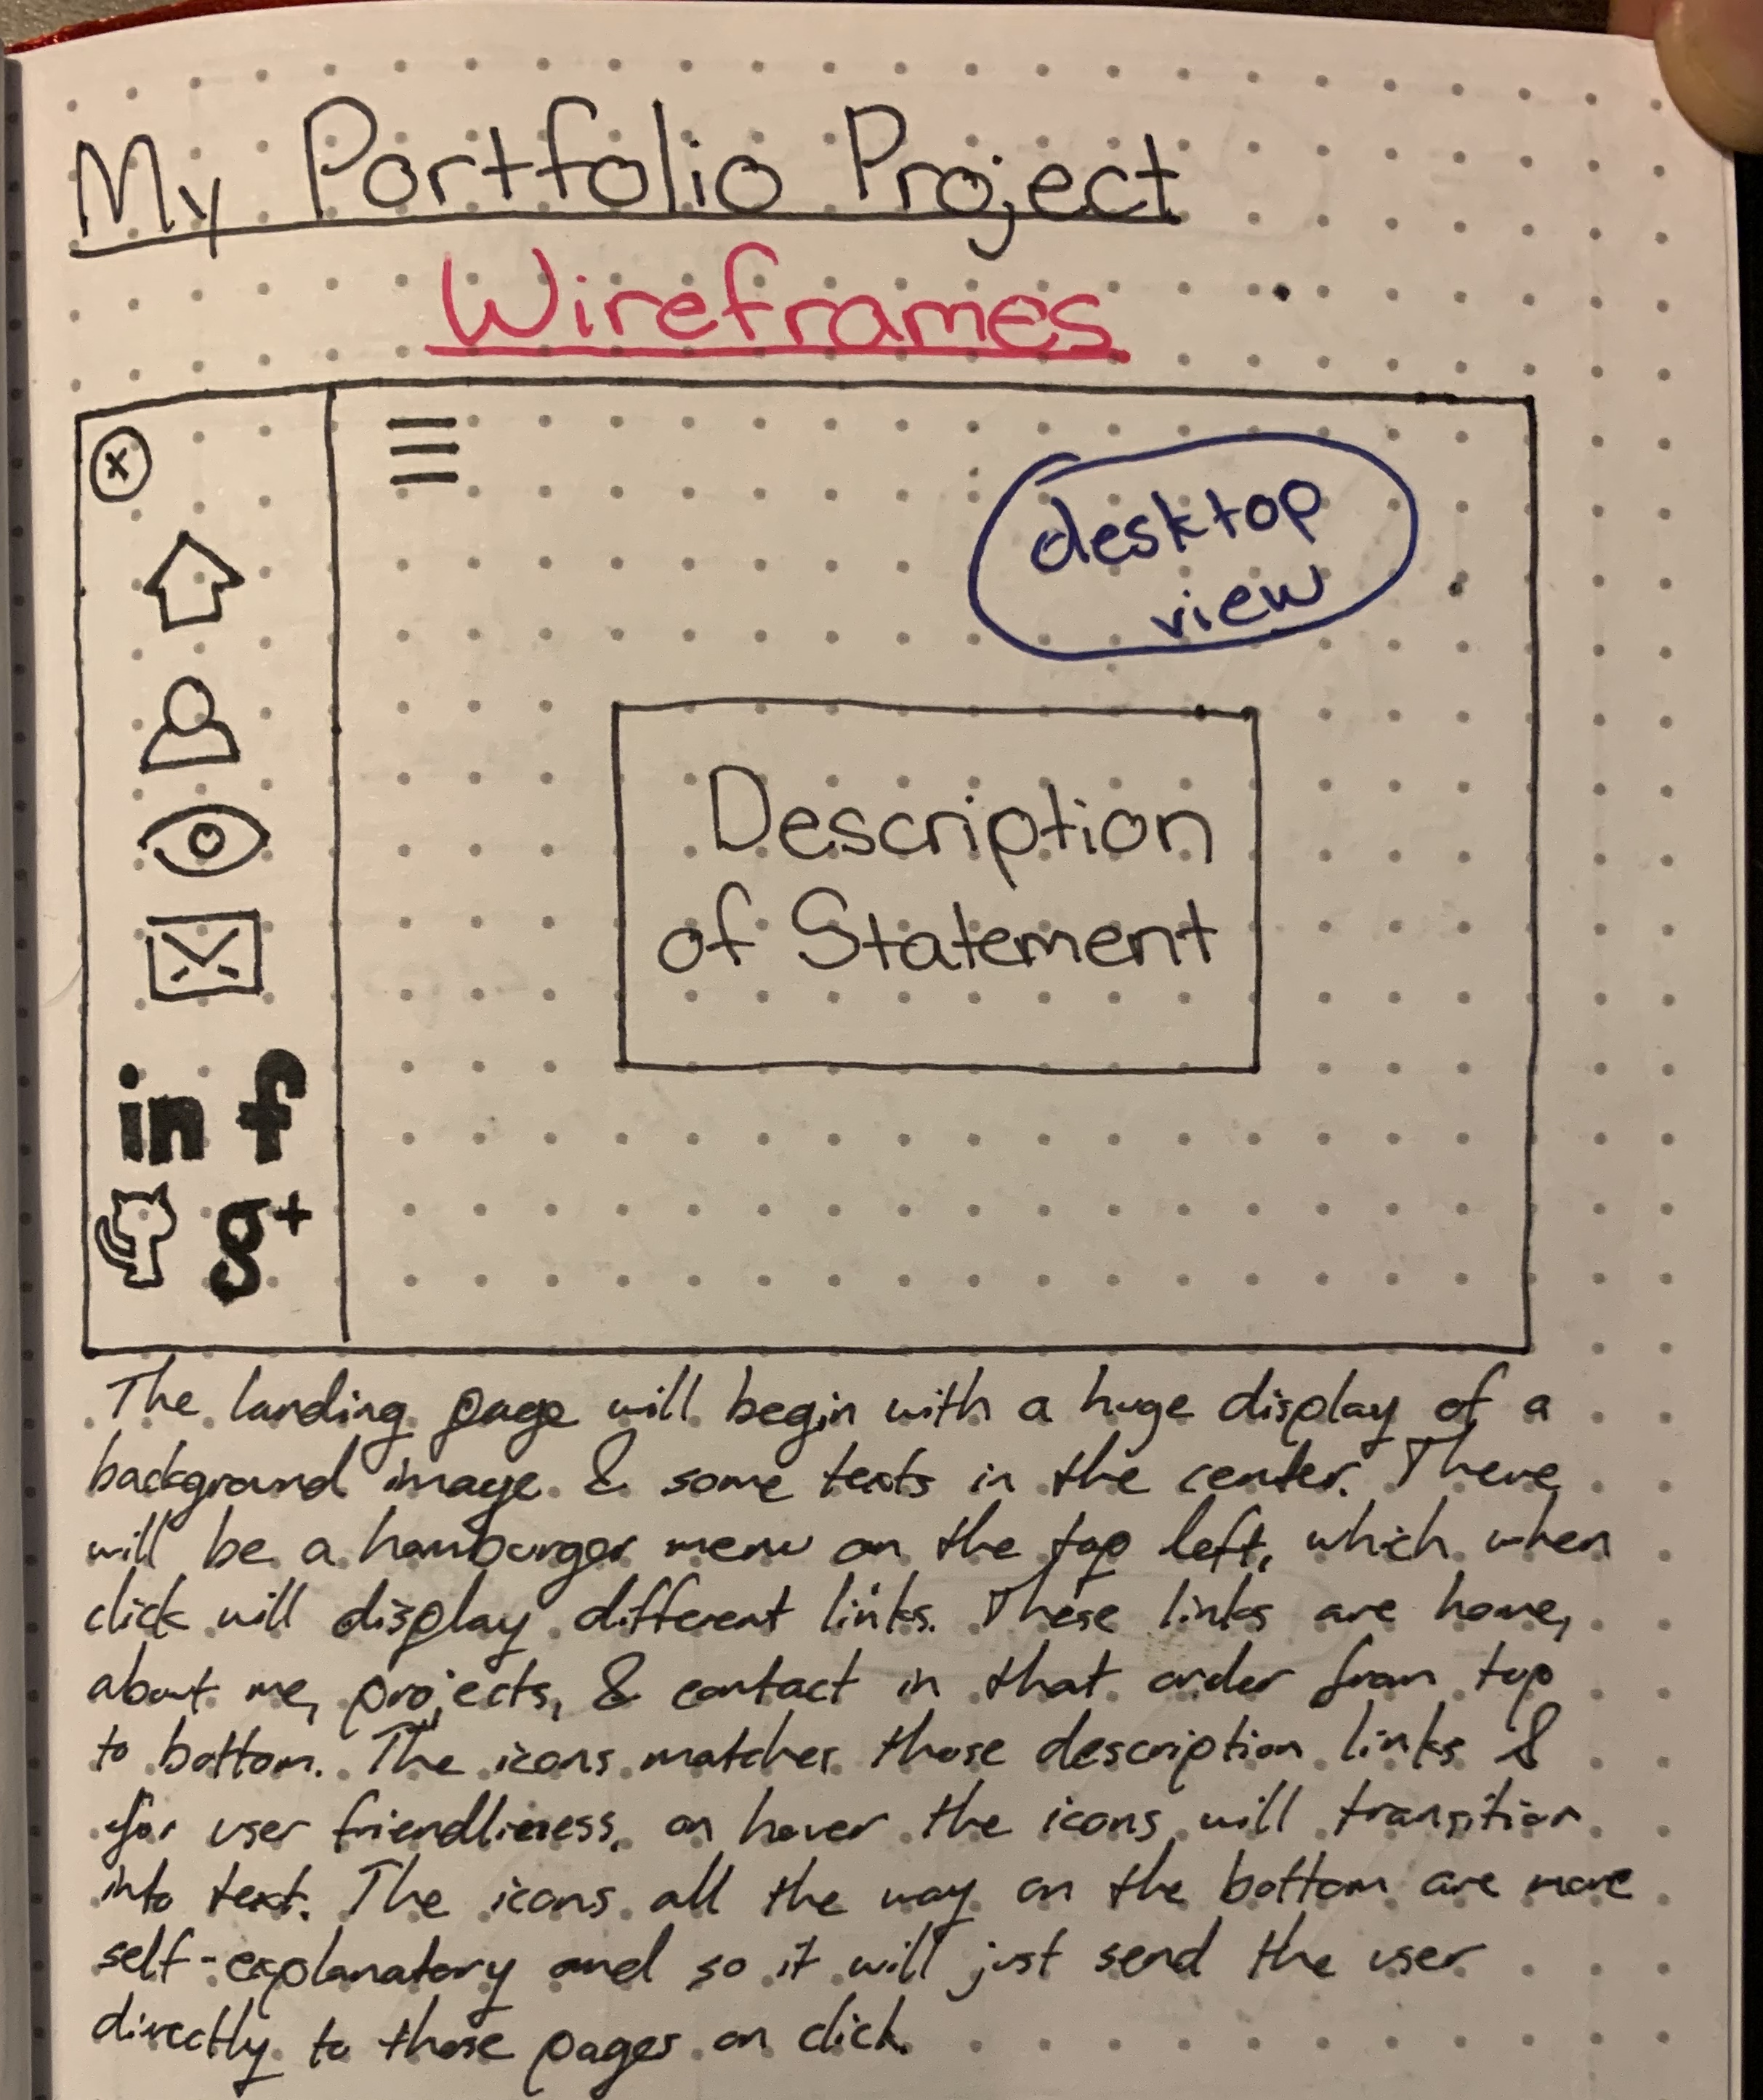 My Portfolio Project
Wireframes
desktop
view
Description
of Statement
in f
g+
The landing page will begin with a huge display of a
background image & some texts in the center. There
will be a hamburger menu on the top left, which when
click will display different links. These links are home,
about me, projects, & contact in that order from top
to bottom. The icons matches those description links &
for user friendliness, on hover the icons will transition
into text. The icons all the way on the bottom are more
self-explanatory and so it will just send the user
directly to those pages on click.